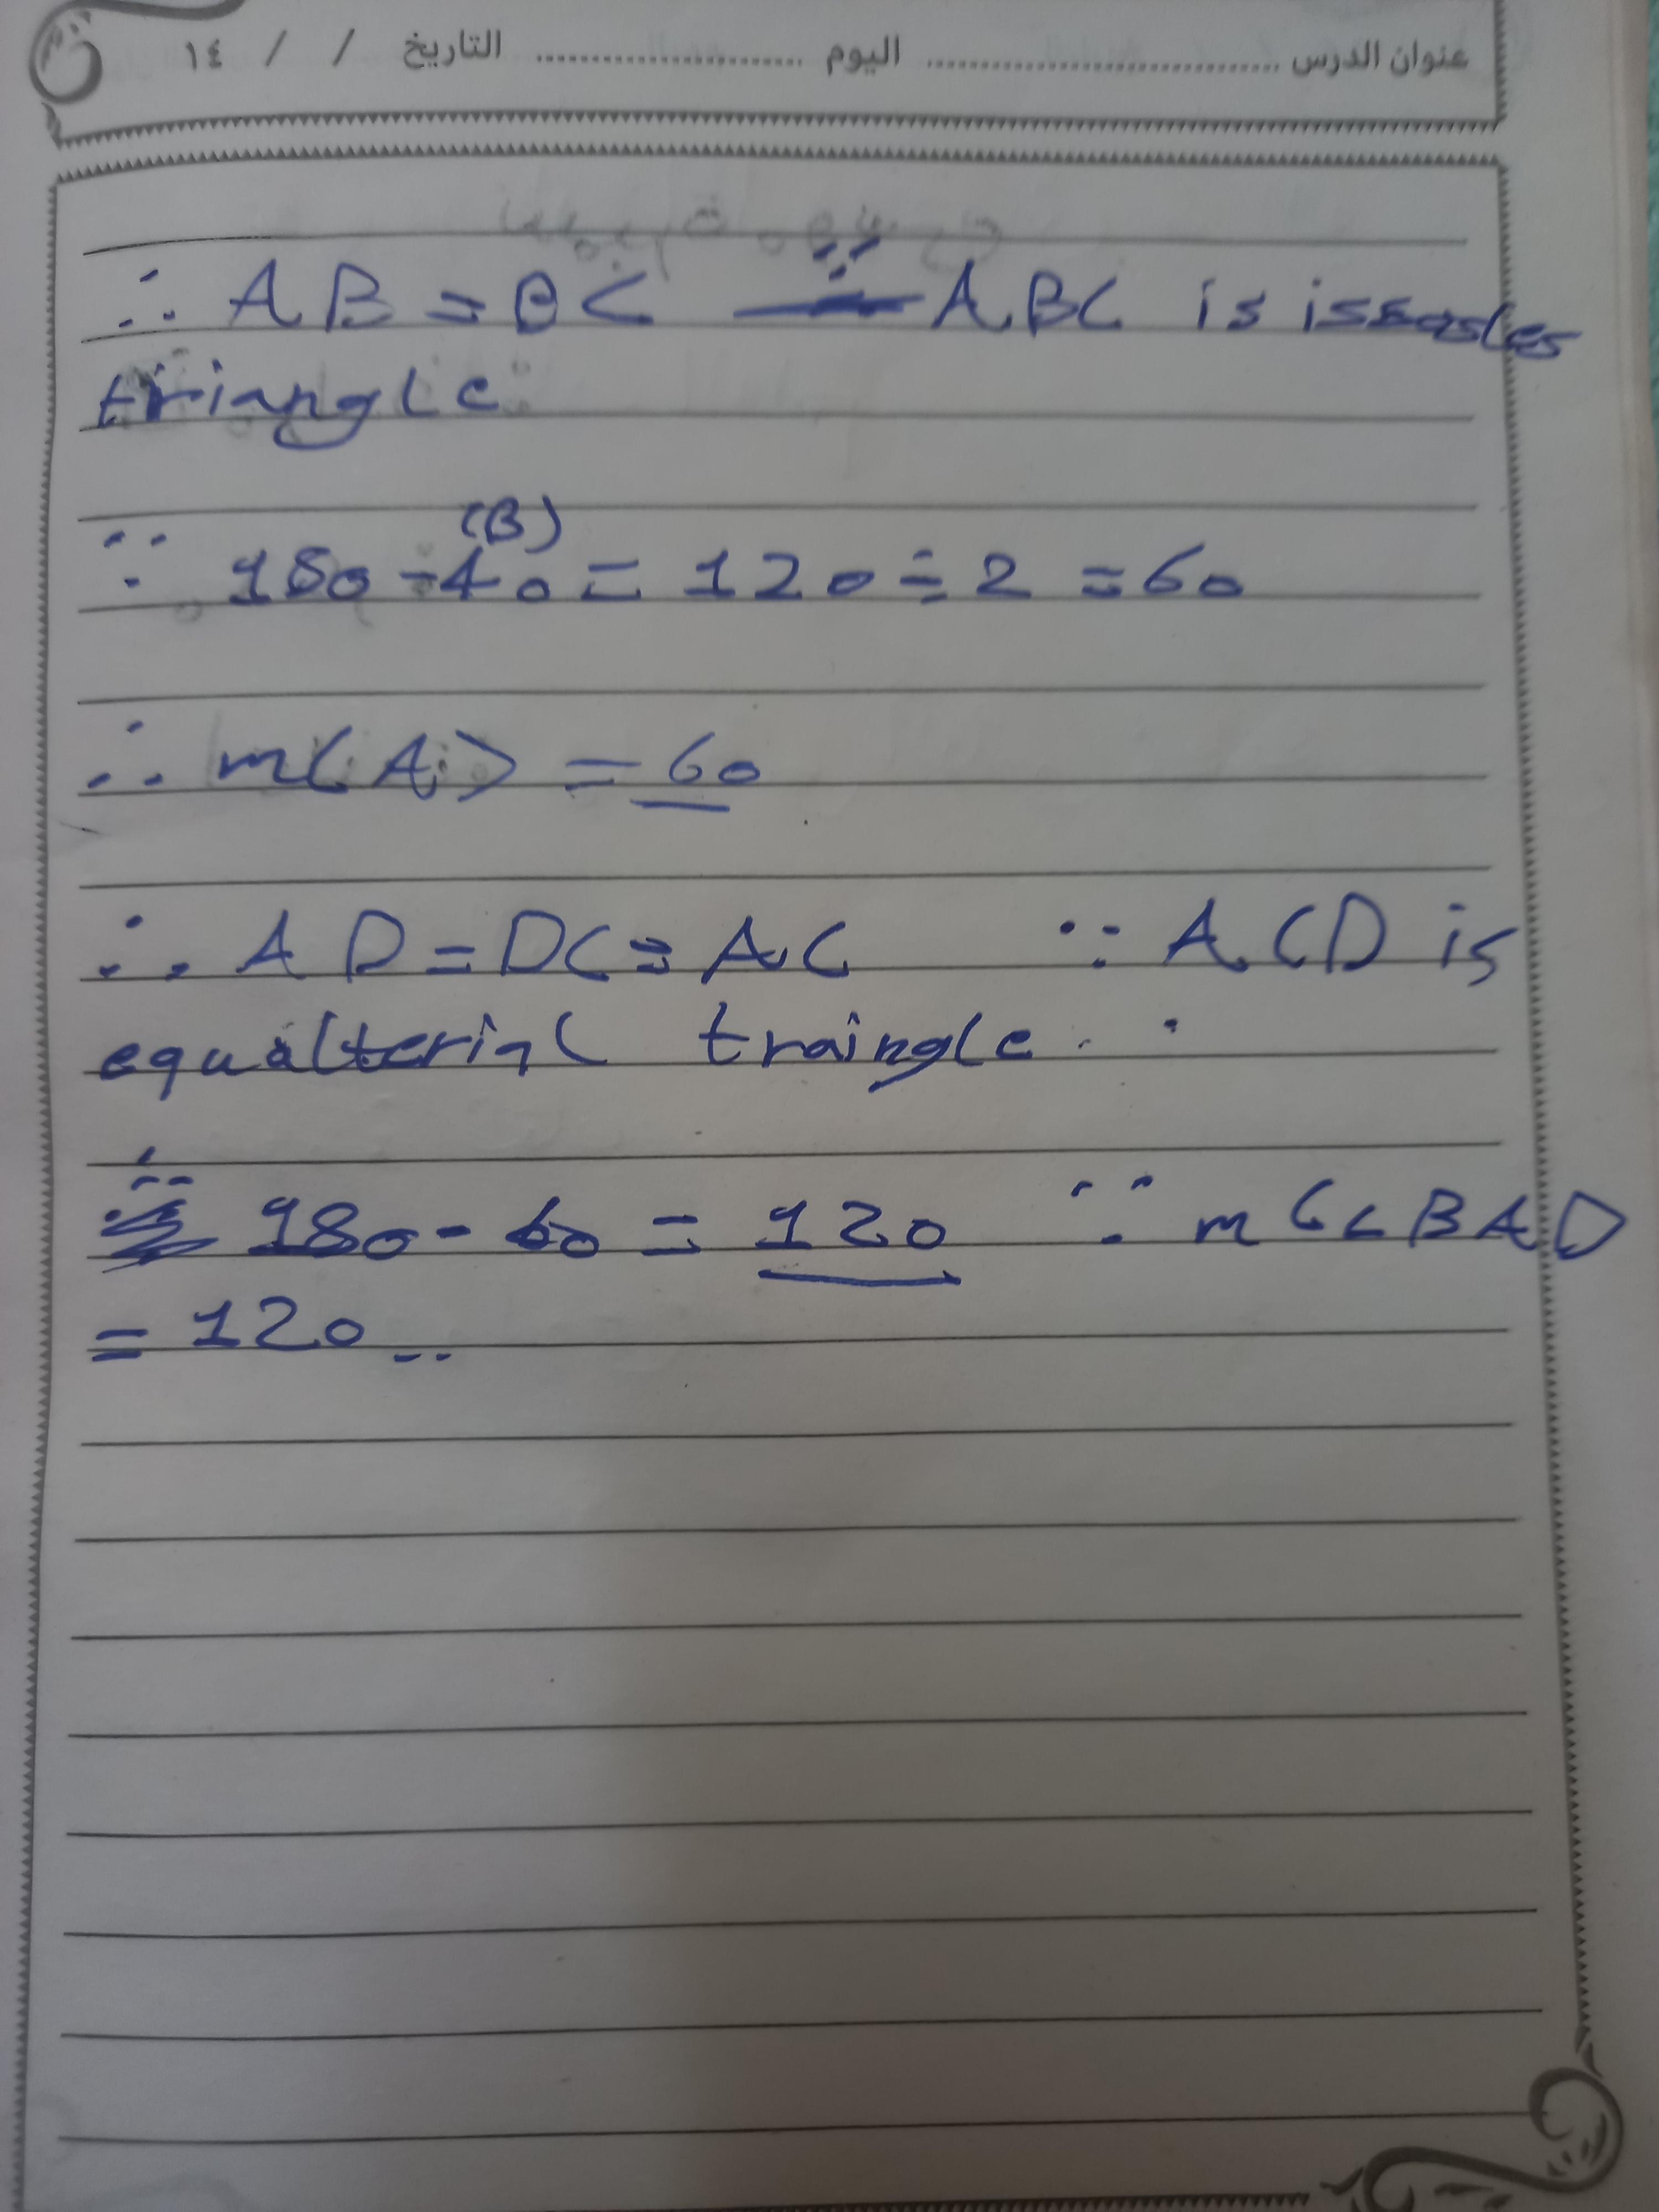 عنوان الدرس ........................ اليوم .................. التاريخ / / ١٤
∴ AB = BC ∴ ABC is issascles
triangle.
(B)
∵ 180 - 40 = 120 ÷ 2 = 60
∴ m(A) = 60
∴ AD = DC = AC ∵ ACD is
equalterial traingle.
∴ 180 - 60 = 120 ∵ m(∠BAD
= 120